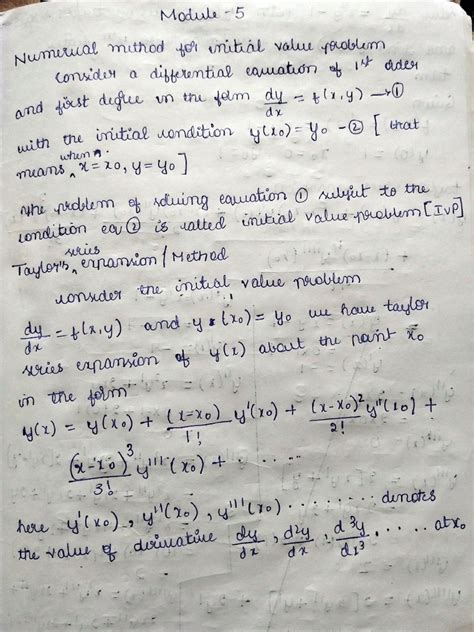 Module - 5
Numerical method for initial value problem
consider a differential equation of 1st order
and first degree in the form dy/dx = f(x,y) → ①
with the initial condition y(x₀) = y₀ - ② [ that
means, when x = x₀, y = y₀ ]
The problem of solving equation ① subject to the
condition eq ② is called initial value problem [IVP]
Taylor's series expansion / Method
consider the initial value problem
dy/dx = f(x,y) and y(x₀) = y₀ we have taylor
series expansion of y(x) about the point x₀
in the form
y(x) = y(x₀) + (x-x₀)/1! y'(x₀) + (x-x₀)²/2! y''(x₀) +
(x-x₀)³/3! y'''(x₀) + . . . . .
here y'(x₀), y''(x₀), y'''(x₀) . . . . . . . denotes
the value of derivative dy/dx, d²y/dx, d³y/dx³ . . . . . at x₀